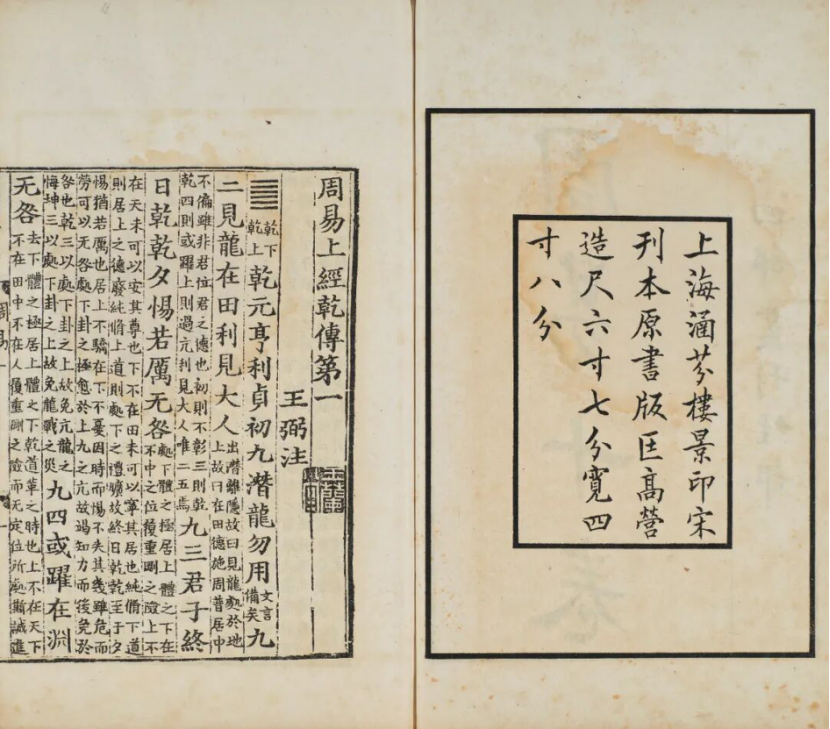 上海涵芬樓景印宋
刊本原書版匡高營
造尺六寸七分寬四
寸八分
周易上經乾傳第一
王弼注
䷀乾下乾上乾元亨利貞初九潛龍勿用文言備矣九
二見龍在田利見大人出潛離隱故曰見龍處於地上故曰在田德施周普居中
不偏雖非君位君之德也初則不彰三則乾乾四則或躍上則過亢利見大人唯二五焉九三君子終
日乾乾夕惕若厲无咎處下體之極居上體之下在不中之位履重剛之險上不
在天未可以安其尊也下不在田未可以寧其居也純脩下道則居上之德廢純脩上道則處下之禮曠故終日乾乾至于夕
惕猶若厲也居上不驕在下不憂因時而惕不失其幾雖危而勞可以无咎處下卦之極愈於上九之亢故竭知力而後免於
咎也乾三以處下卦之上故免亢龍之悔坤三以處下卦之上故免龍戰之災九四或躍在淵
无咎去下體之極居上體之下乾道革之時也上不在天下不在田中不在人履重剛之險而无定位所處斯誠進